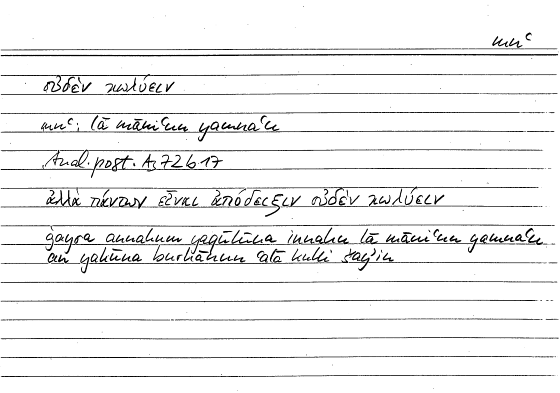 mnʿ
οὐδὲν κωλύειν
mnʿ; lā māniʿun yamnaʿu
Anal. post. A3 72b17
ἀλλὰ πάντων εἶναι ἀπόδειξιν οὐδὲν κωλύειν
ġayra annahum yaqūlūna innahu lā māniʿun yamnaʿu
an yakūna burhānun ʿalā kulli šayʾin